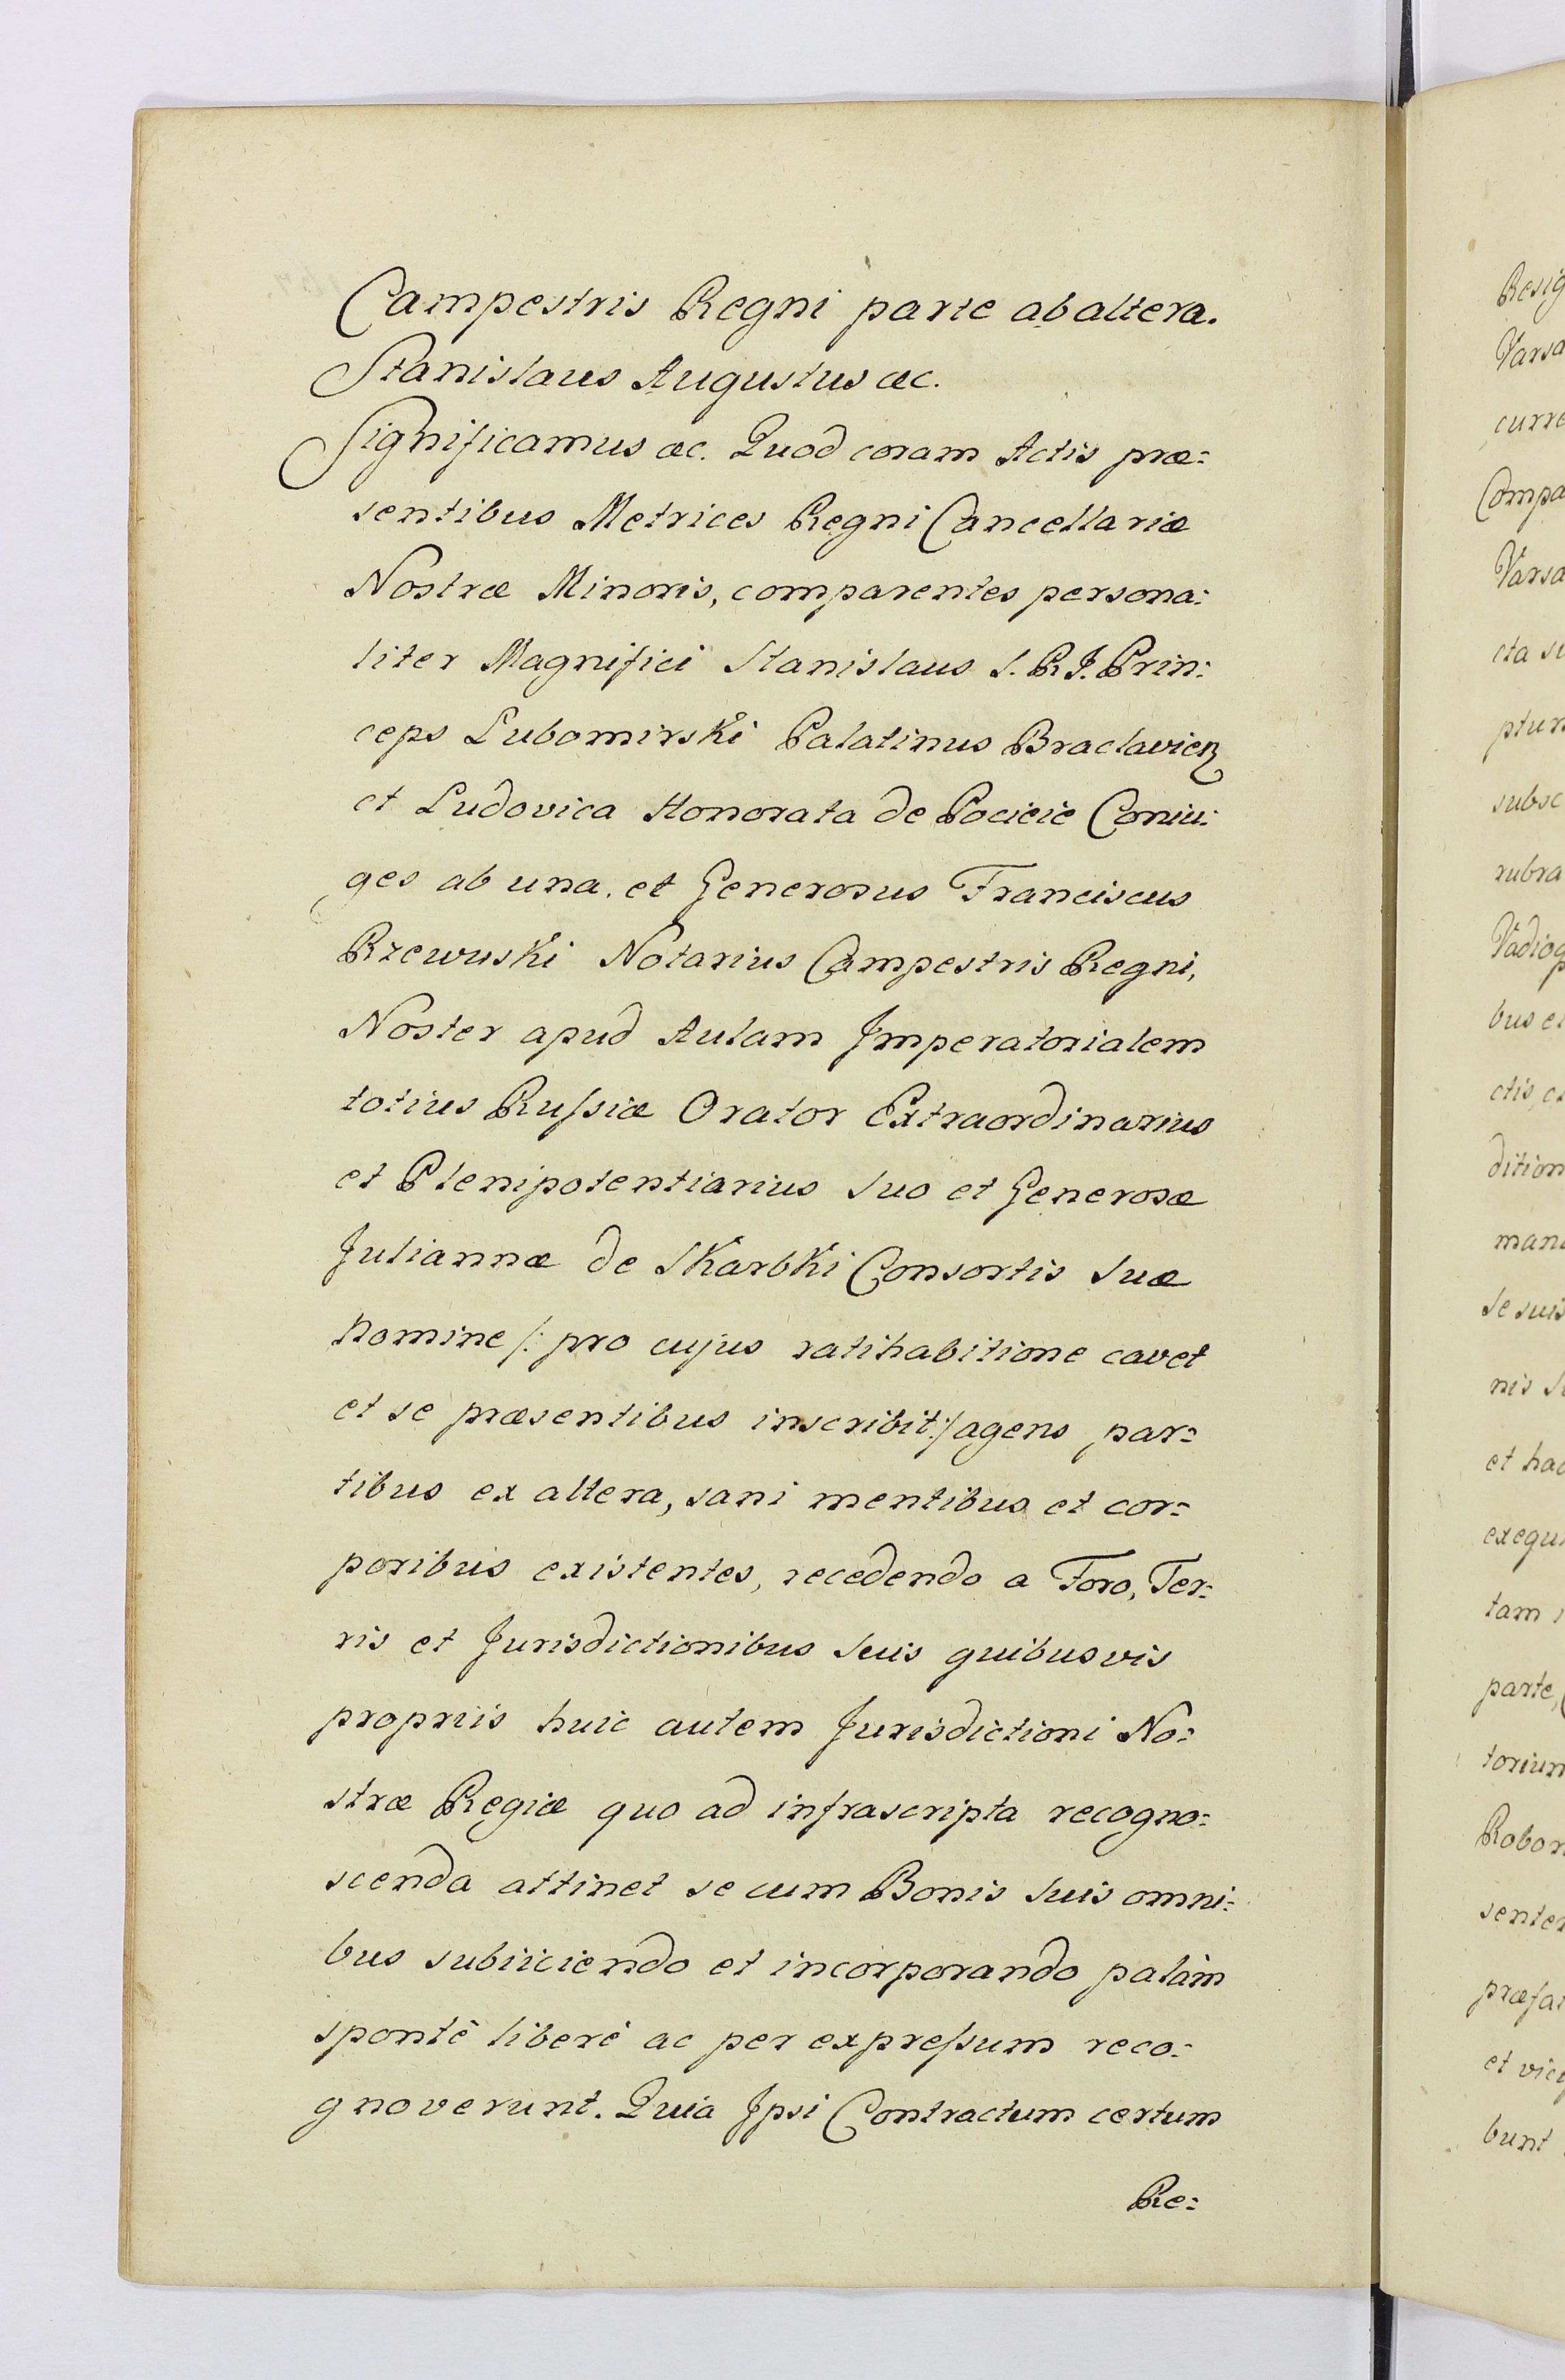 Campestris Regni parte ab altera.
Stanislaus Augustus &c.
Significamus &c. Quod coram Actis præ=
sentibus Metrices Regni Cancellariæ
Nostræ Minoris, comparentes persona=
liter Magnifici Stanislaus S. R. J. Prin=
ceps Lubomirski Palatinus Braclavien
et Ludovica Honorata de Pocieie Coniu=
ges ab una, et Generosus Franciscus
Rzewuski Notarius Campestris Regni,
Noster apud Aulam Jmperatorialem
totius Rußiæ Orator Extraordinarius
et Plenipotentiarius Suo et Generosæ
Juliannæ de Skarbki Consortis Suæ
Nomine /: pro cujus ratihabitione cavet
et se præsentibus inscribit :/ agens, par=
tibus ex altera, sani mentibus et cor=
poribus existentes, recedendo a Foro, Ter=
ris et Jurisdictionibus Suis quibusvis
propriis huic autem Jurisdictioni No=
stræ Regiæ quo ad infrascripta recogno=
scenda attinet se cum Bonis Suis omni=
bus subiiciendo et incorporando palàm
spontè liberè ac per expreßum reco=
gnoverunt. Quia Jpsi Contractum certum
Re=
Resig
Varsa
curre
Compa
Varsa
cta su
ptum
subsc
rubra
Vadiog
bus et
ctis, ex
dition
mana
Se suis
nis S
et hac
exequ
tam
parte,
torium
Robor
senten
præfat
et vic
bunt